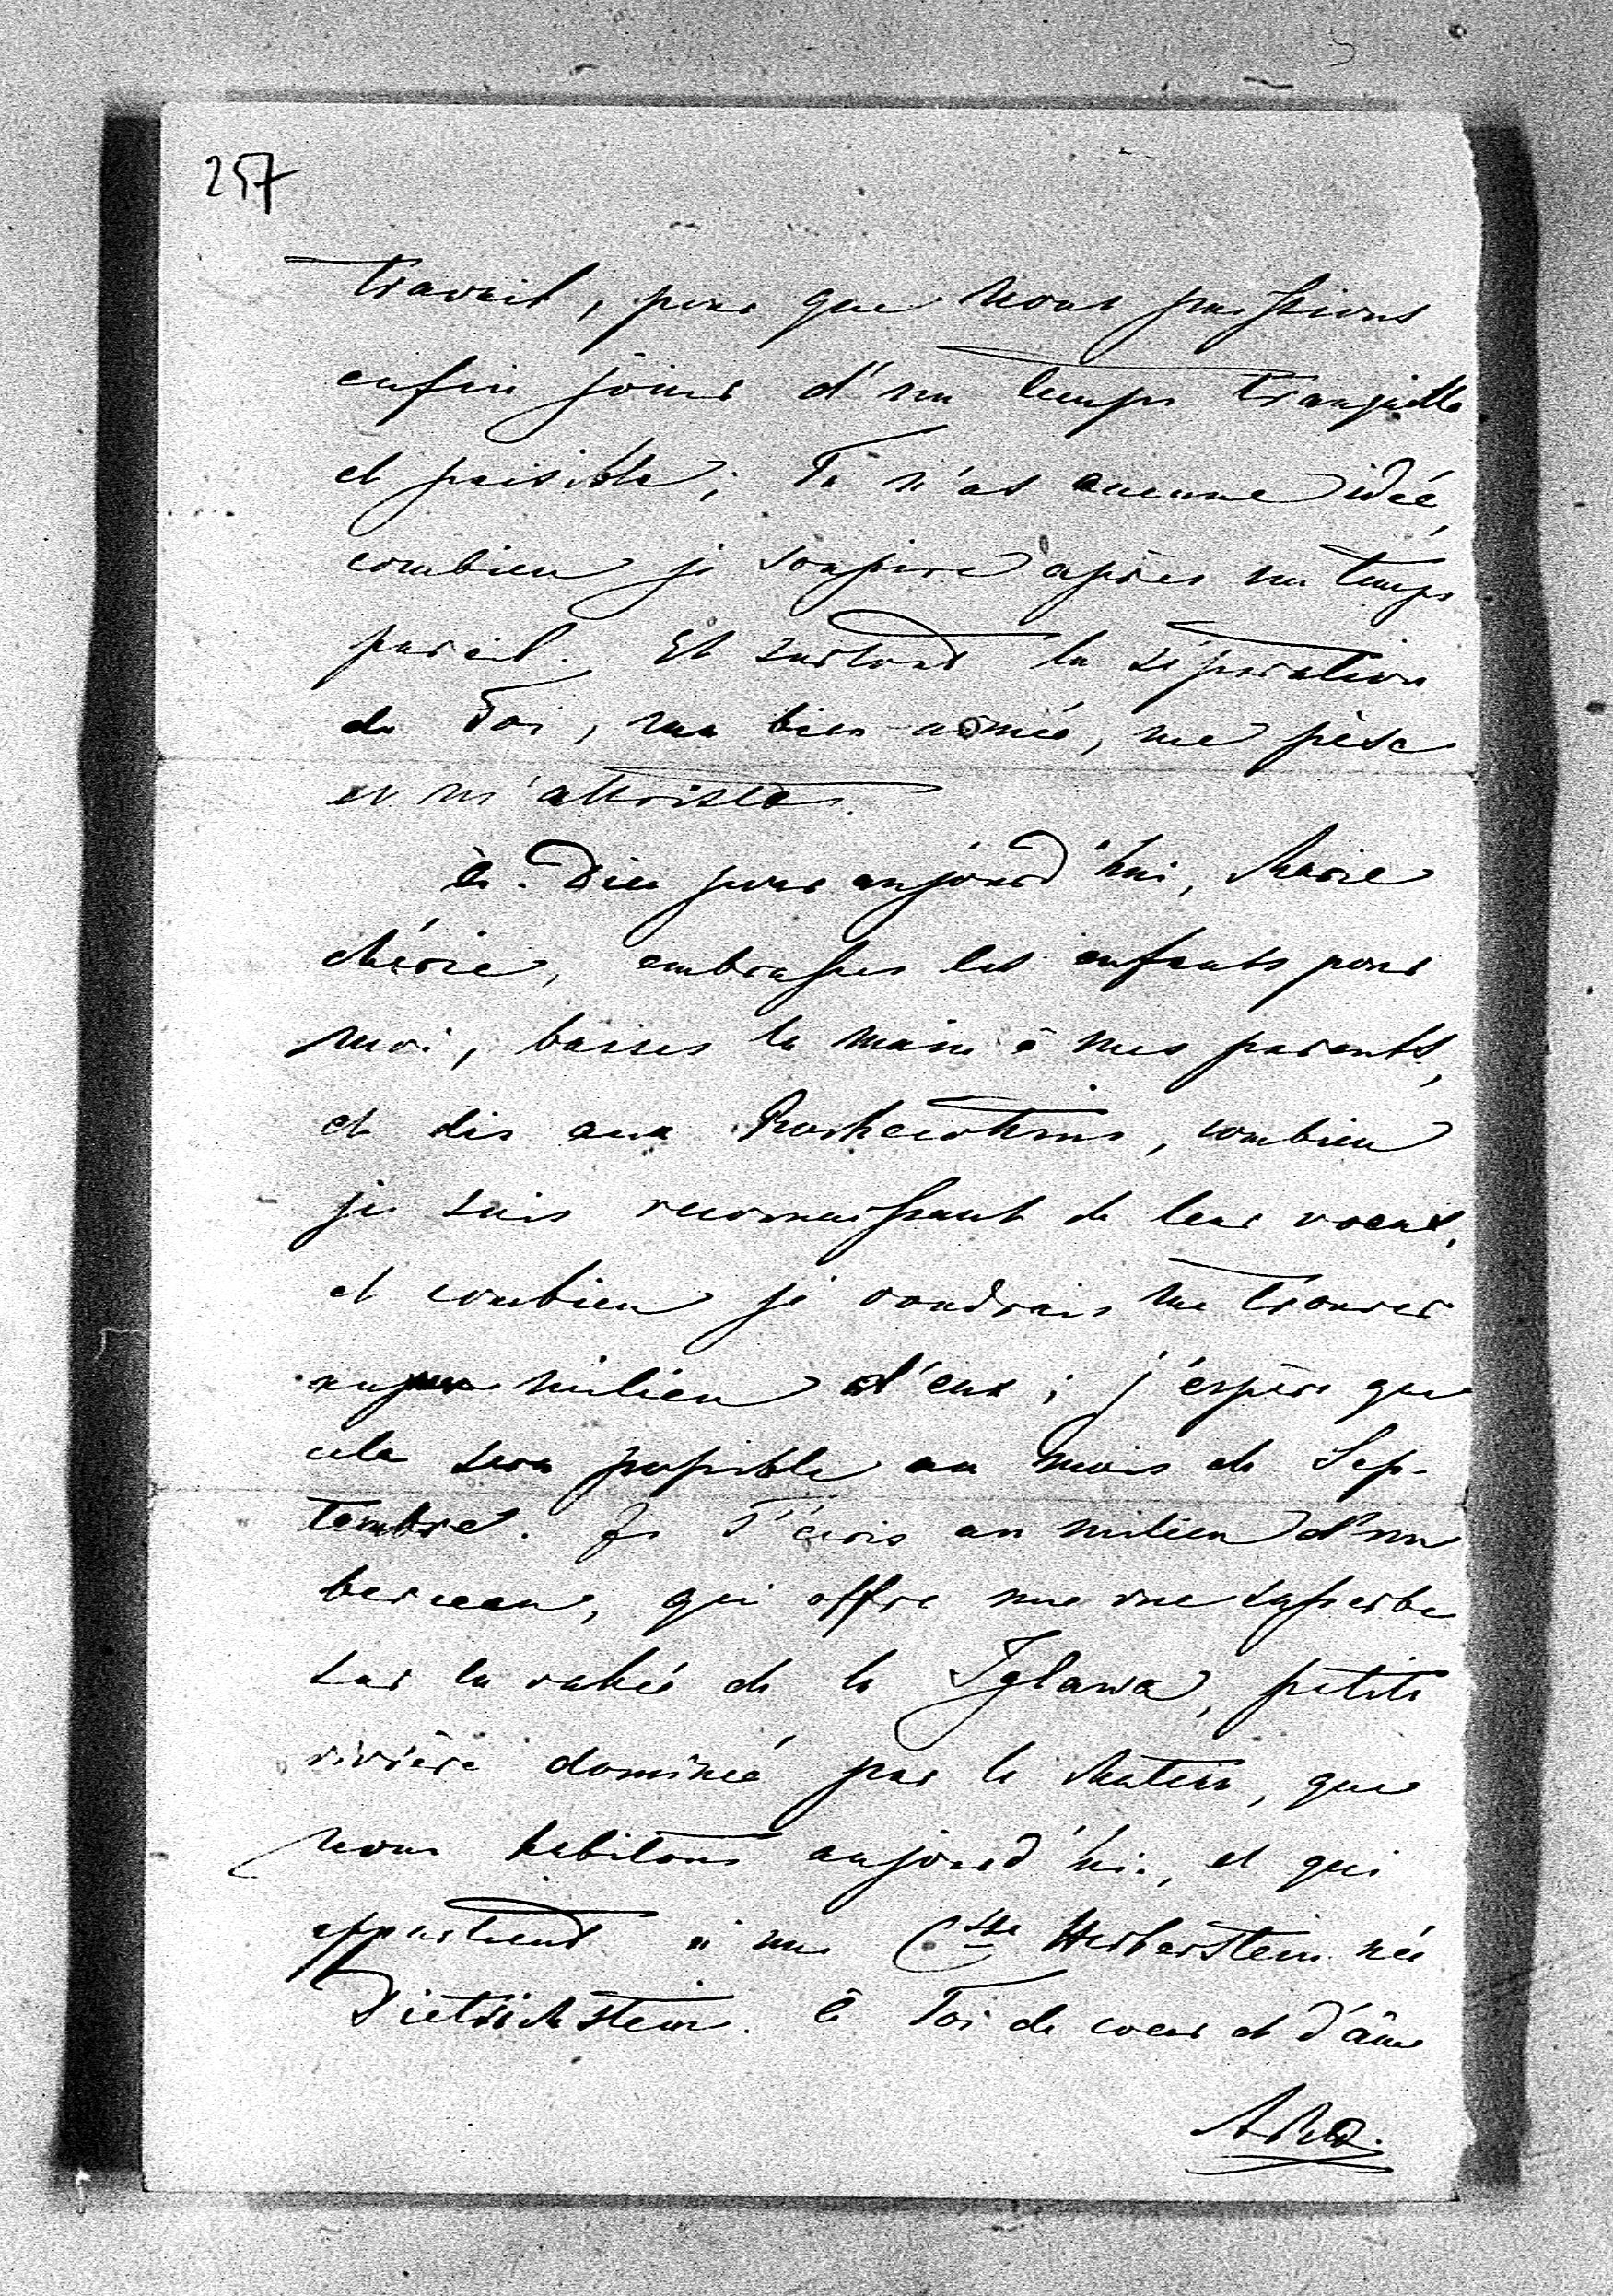 257
travail, pour que nous puissions
enfin jouir d'un temps tranquille
et paisible; Tu n'as aucune idée,
combien je soupire après un temps
pareil. Et surtout la séparation
de Toi, ma bien-aimée, me pèse
et m'attriste.
à Dieu pour aujourd'hui, Marie
chérie, embrasses les enfants pour
moi, baises la main à mes parents,
et dis aux combien
je suis reconnaissant de leur voeux,
et combien je voudrais me trouver
au milieu d'eux; j'espère que
cela sera possible au mois de Sep-
tembre. Je T'écris au milieu d'un
berceau, qui offre une vue superbe
sur la vallée de la Iglawa, petite
rivière dominée par le château, que
nous habitons aujourd'hui, et qui
appartient à une Ctsse Herberstein née
Dietrichstein. à Toi de coeur et d'âme